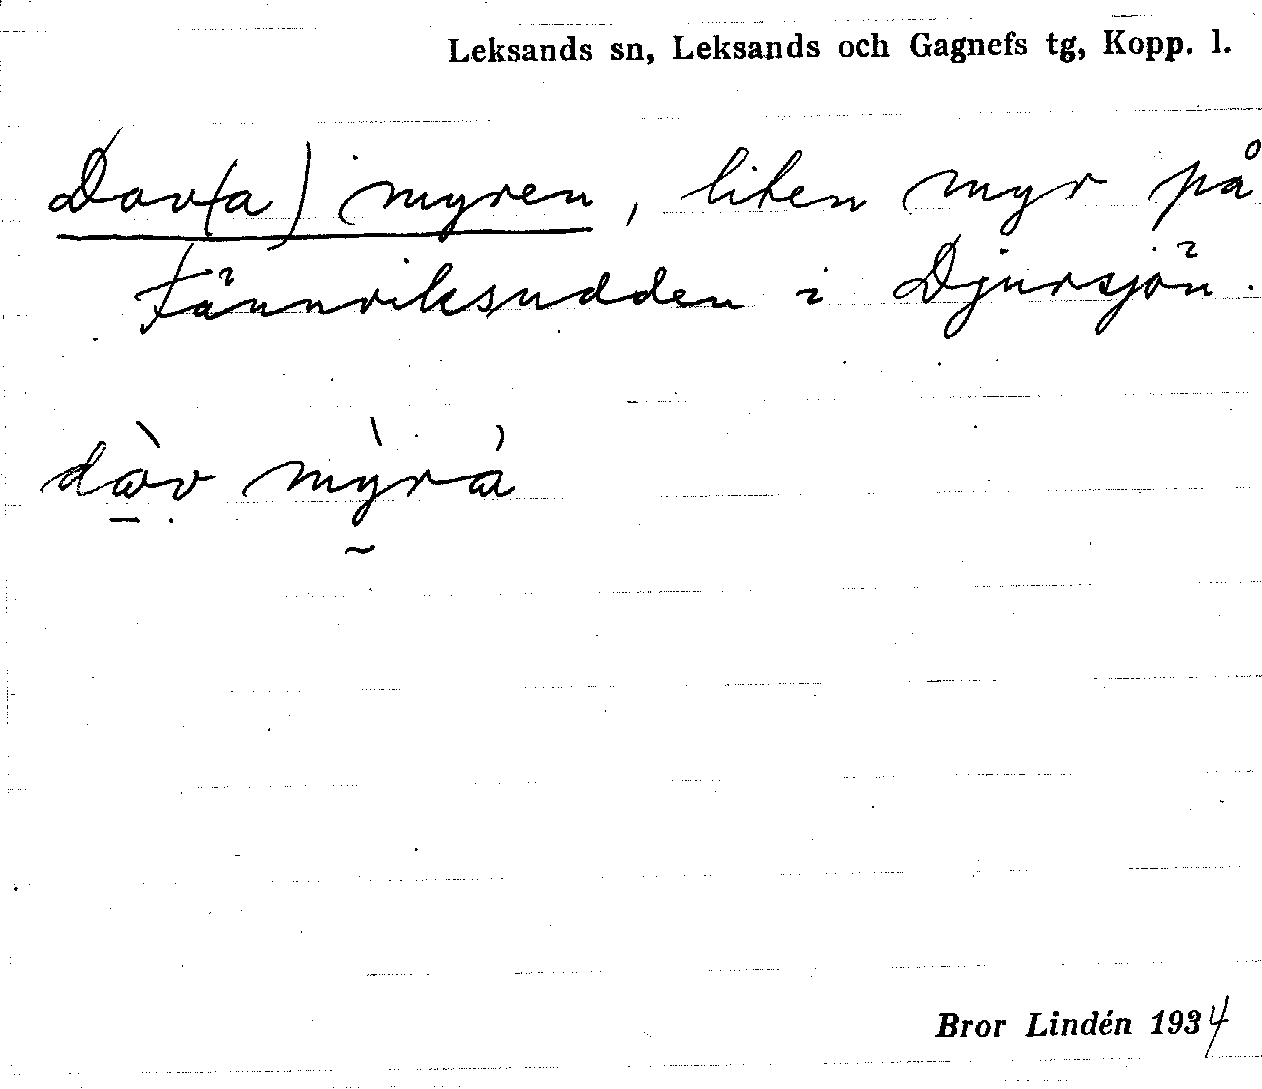 Leksands sn, Leksands och Gagnefs tg, Kopp. l.
Dav(a)myren, liten myr på
Fännriksudden i Djursjön.
dàv mỳrá
Bror Lindén 1934